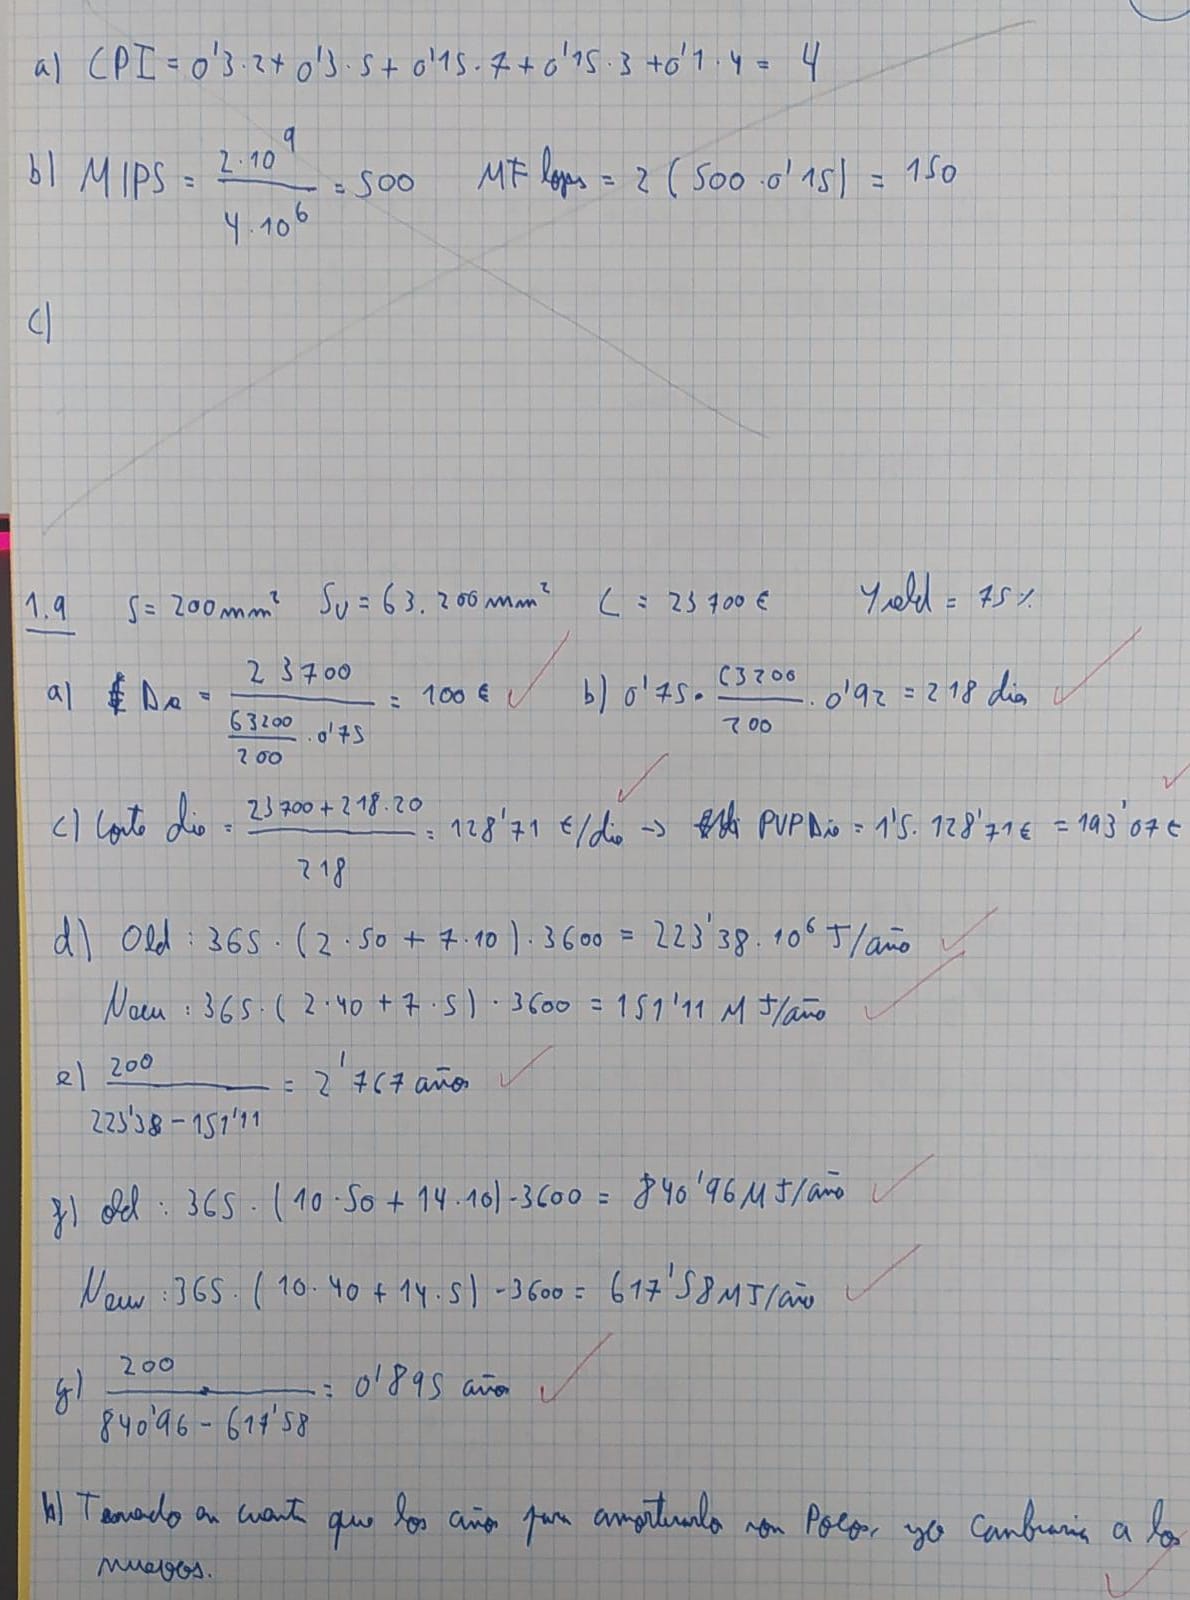 a) CPI = 0'3·2 + 0'3·5 + 0'15·7 + 0'15·3 + 0'1·4 = 4
b) MIPS = 2·10^9 / 4·10^6 = 500 MFlops = 2 (500·0'15) = 150
c)
1.9 S = 200mm² Su = 63.200mm² C = 23700 € Yield = 75%
a) € Die = 23700 / (63200/200 · 0'75) = 100 € b) 0'75 · 63200/200 · 0'92 = 218 dies
c) Coste die = (23700 + 218·20) / 218 = 128'71 €/die → PVP Die = 1'5 · 128'71€ = 193'07€
d) Old : 365 · (2·50 + 7·10) · 3600 = 223'38·10^6 J/año
New : 365 · (2·40 + 7·5) · 3600 = 151'11 MJ/año
e) 200 / (223'38 - 151'11) = 2'767 años
f) Old : 365 · (10·50 + 14·10) · 3600 = 840'96 MJ/año
New : 365 · (10·40 + 14·5) · 3600 = 617'58 MJ/año
g) 200 / (840'96 - 617'58) = 0'895 años
h) en cuenta que los años para amortizarlo son Pocos, yo cambiaria a los
nuevos.